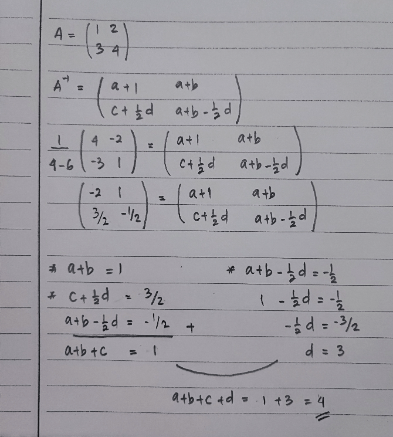 A = (1 2
3 4)
A⁻¹ = (a+1 a+b
c+½d a+b-½d)
1/4-6 (4 -2
-3 1) = (a+1 a+b
c+½d a+b-½d)
(-2 1
3/2 -1/2) = (a+1 a+b
c+½d a+b-½d)
* a+b = 1 * a+b-½d = -½
* c+½d = 3/2 1 - ½d = -½
a+b-½d = -1/2 + -½d = -3/2
a+b+c = 1 d = 3
a+b+c+d = 1+3 = 4